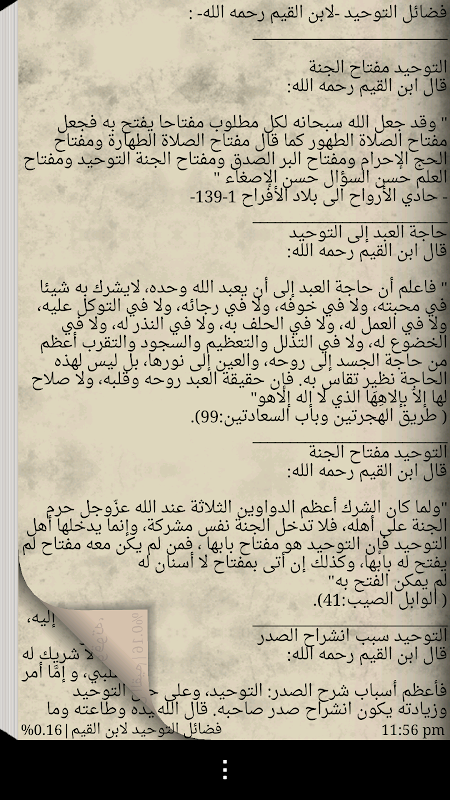 فضائل التوحيد -لابن القيم رحمه الله- :
التوحيد مفتاح الجنة
قال ابن القيم رحمه الله:
" وقد جعل الله سبحانه لكل مطلوب مفتاحا يفتح به فجعل
مفتاح الصلاة الطهور كما قال مفتاح الصلاة الطهارة ومفتاح
الحج الإحرام ومفتاح البر الصدق ومفتاح الجنة التوحيد ومفتاح
العلم حسن السؤال حسن الإصغاء "
- حادي الأرواح الى بلاد الأفراح 1-139-
حاجة العبد إلى التوحيد
قال ابن القيم رحمه الله:
" فاعلم أن حاجة العبد إلى أن يعبد الله وحده، لايشرك به شيئا
في محبته، ولا في خوفه، ولا في رجائه، ولا في التوكل عليه،
ولا في العمل له، ولا في الحلف به، ولا في النذر له، ولا في
الخضوع له، ولا في التذلل والتعظيم والسجود والتقرب أعظم
من حاجة الجسد إلى روحه، والعين إلى نورها، بل ليس لهذه
الحاجة نظير تقاس به. فإن حقيقة العبد روحه وقلبه، ولا صلاح
لها إلا بإلاهِهَا الذي لا إله إلاهو"
( طريق الهجرتين وباب السعادتين:99).
التوحيد مفتاح الجنة
قال ابن القيم رحمه الله:
"ولما كان الشرك أعظم الدواوين الثلاثة عند الله عزّوجل حرم
الجنة على أهله، فلا تدخل الجنة نفس مشركة، وإنما يدخلها أهل
التوحيد فإن التوحيد هو مفتاح بابها ، فمن لم يكن معه مفتاح لم
يفتح له بابها، وكذلك إن أتى بمفتاح لا أسنان له
لم يمكن الفتح به"
( الوابل الصيب:41).
إليه،
التوحيد سبب انشراح الصدر
قال ابن القيم رحمه الله:
لا شريك له
و إمَّا أمر
فأعظم أسباب شرح الصدر: التوحيد، وعلى
التوحيد
وزيادته يكون انشراح صدر صاحبه. قال الله
وطاعته وما
11:56 pm
فضائل التوحيد لابن القيم|0.16%